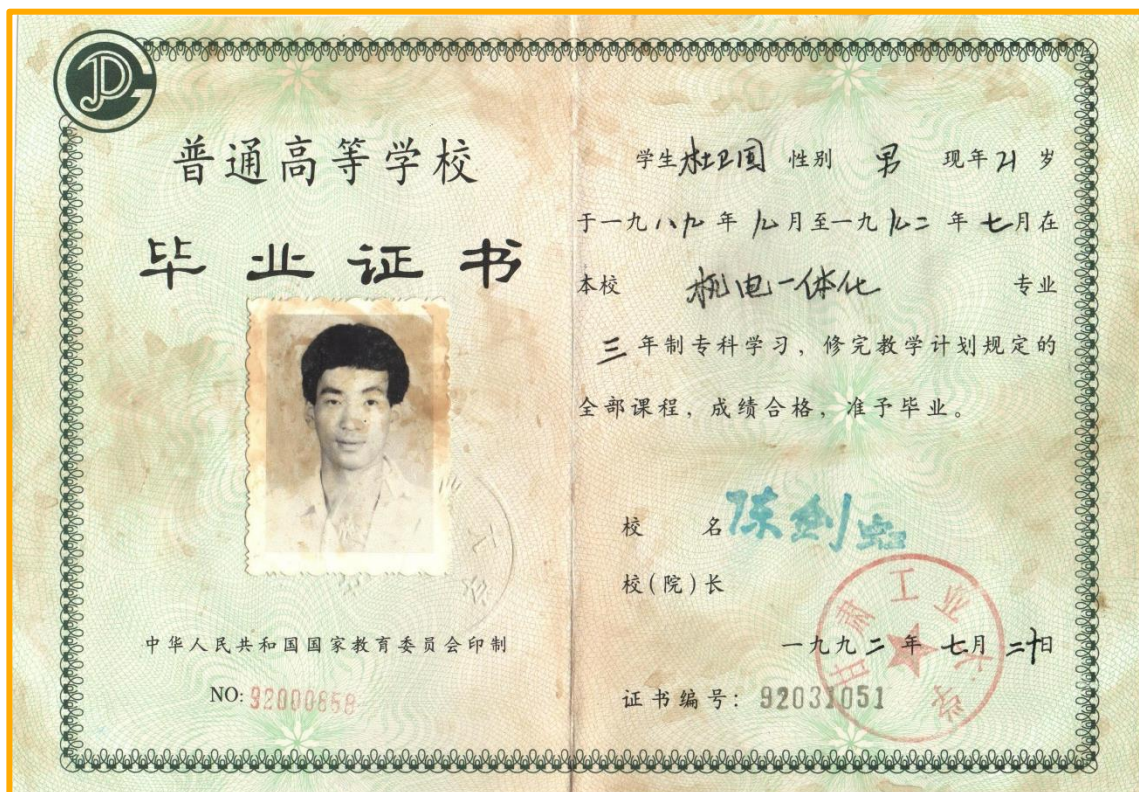 普通高等学校
毕业证书
中华人民共和国国家教育委员会印制
NO: 92000858
学生杜卫国 性别 男 现年21岁
于一九八九年九月至一九九二年七月在
本校 机电一体化 专业
三年制专科学习，修完教学计划规定的
全部课程，成绩合格，准予毕业。
校 名 陈剑虹
校(院)长
甘肃工业大学
一九九二年七月二十日
证书编号：92031051